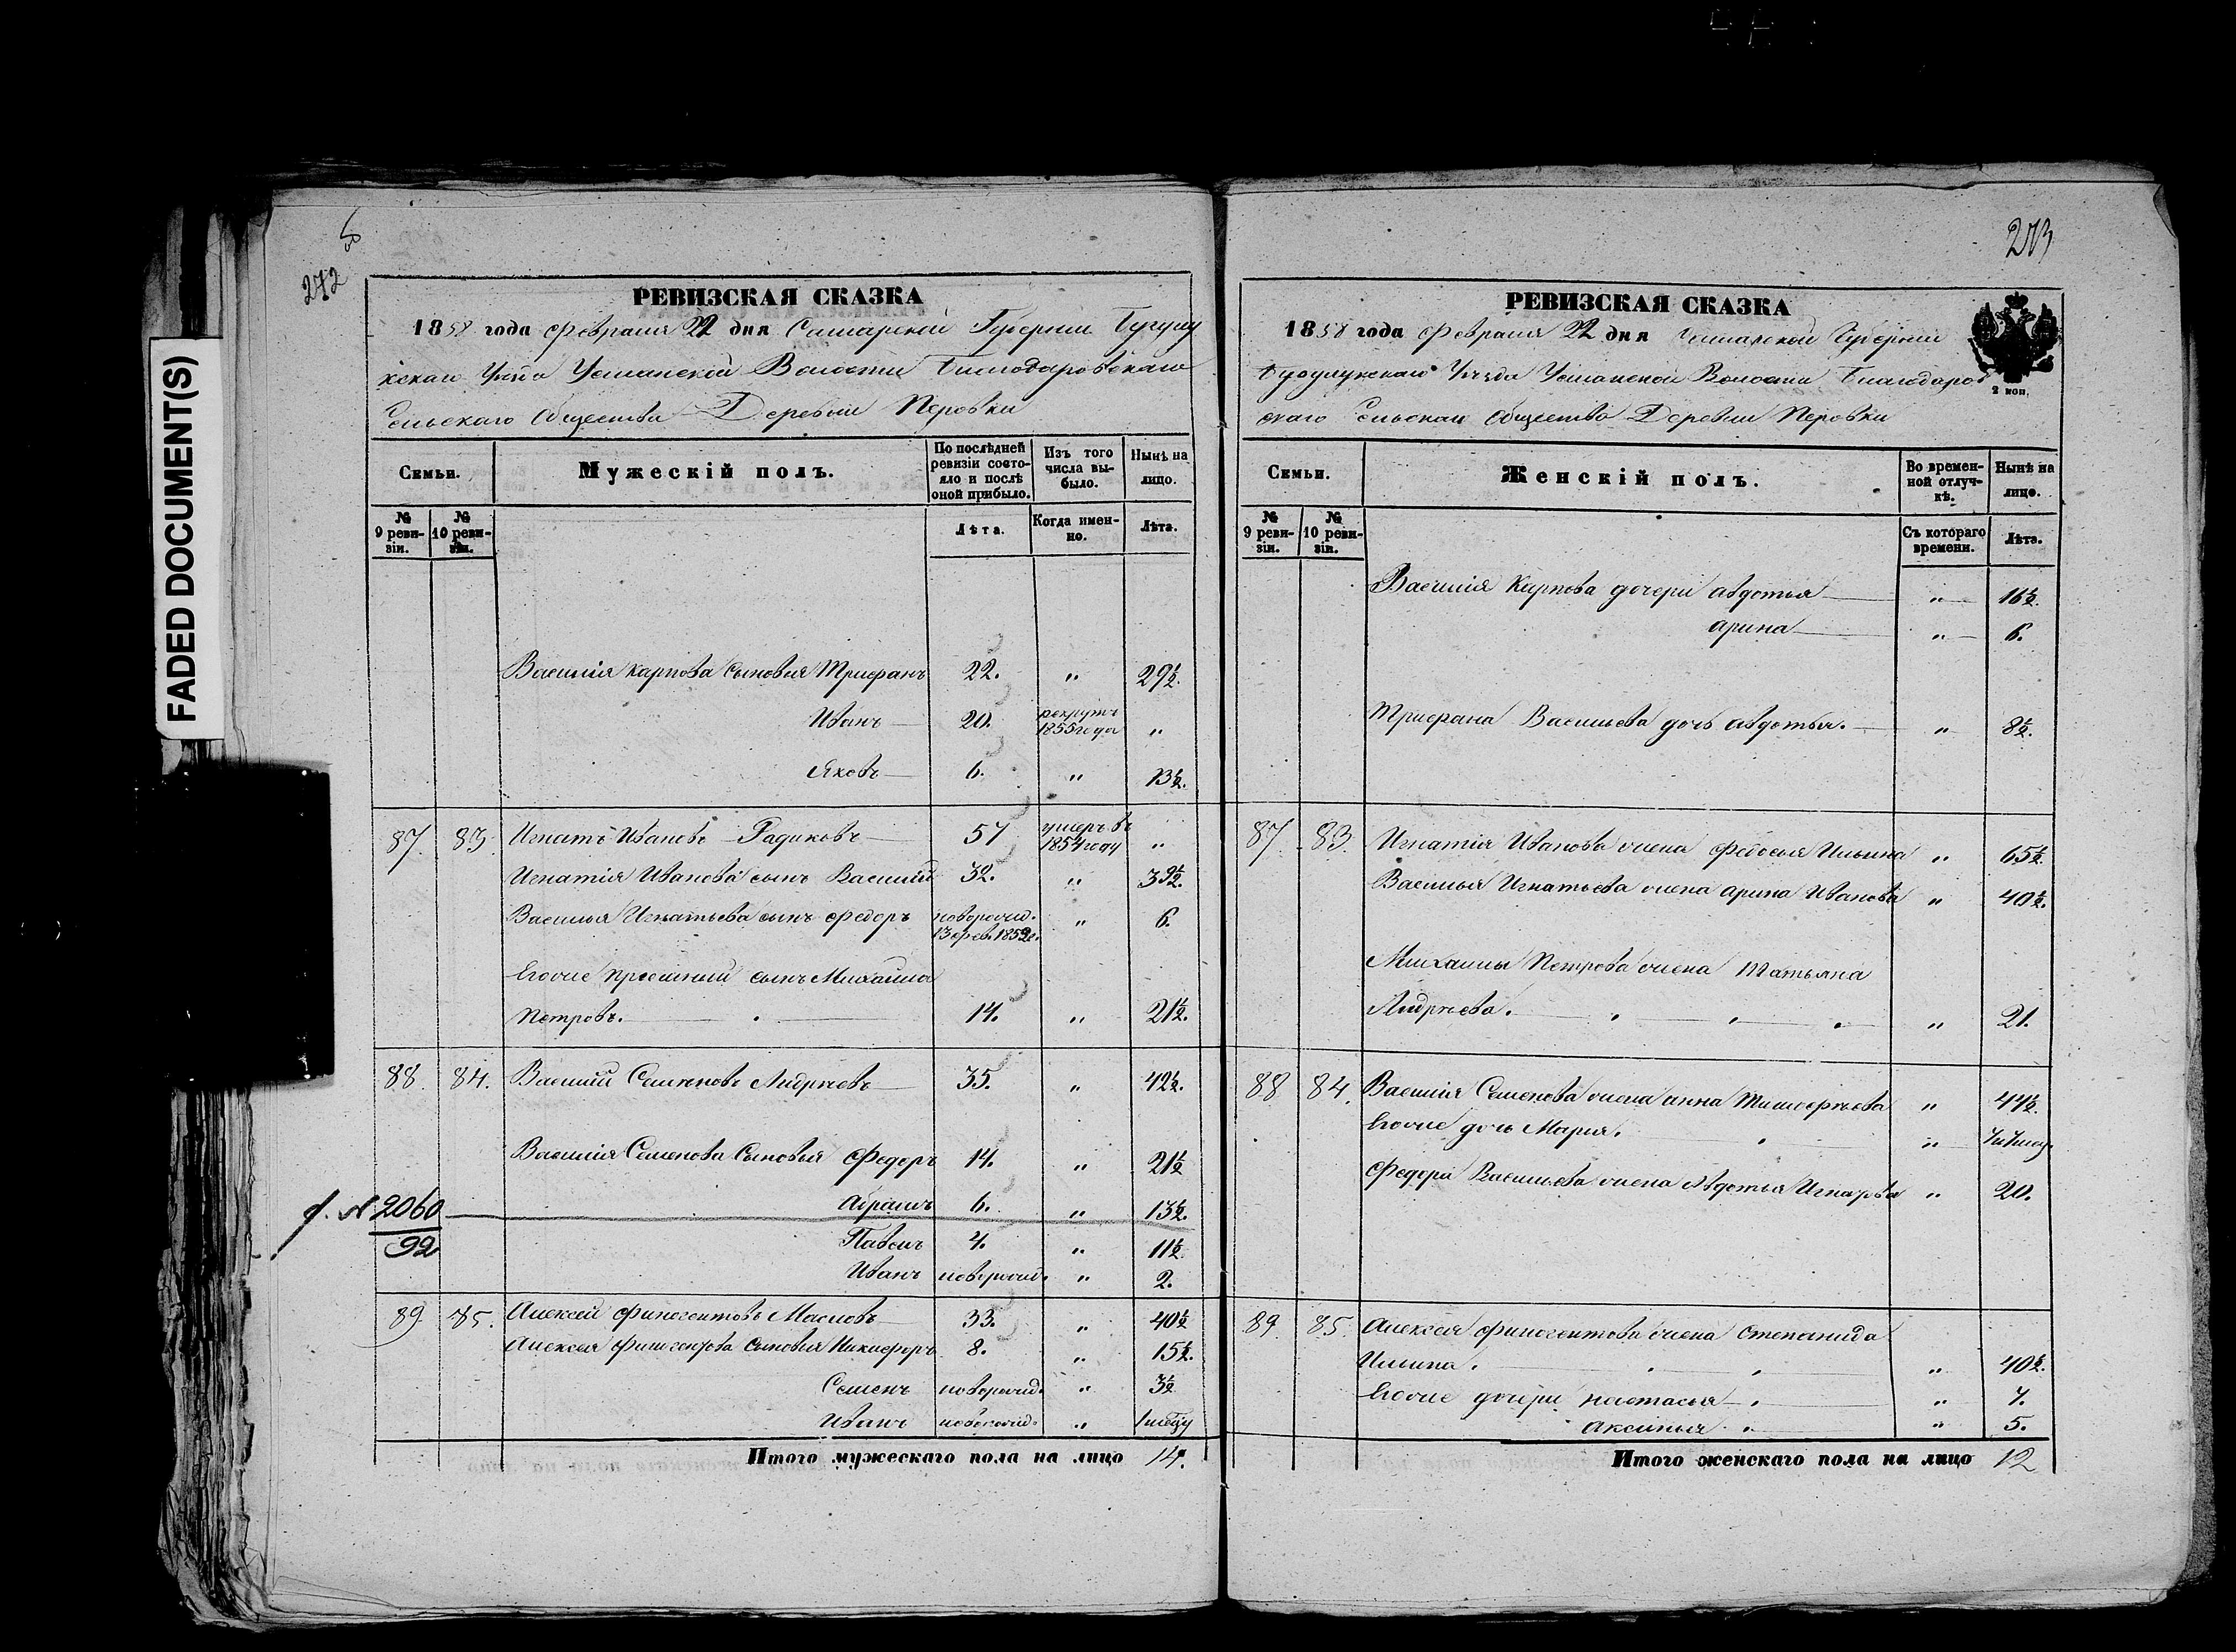 FADED DOCUMENT(S)
272
РЕВИЗСКАЯ СКАЗКА
1858 года Февраля 22 дня Самарской Губернии Бугулу
кскаго Уѣзда Усманской Волости Благодаровскаго
Сельскаго Общества Деревни Перовки
Семьи.
Мужескій полъ.
По послѣдней ревизіи состояло и послѣ оной прибыло.
Изъ того числа выбыло.
Нынѣ на лицо.
№ 9 ревизіи.
№ 10 ревизіи.
Лѣта.
Когда именно.
Лѣта.
Василія Карпова сыновья Трифанъ 22. " 29½.
Иванъ 20. рекрутъ 1855 года "
Яковъ 6. " 13½.
87. 83. Игнатъ Ивановъ Радиковъ 57 умеръ въ 1854 году "
Игнатія Иванова сынъ Василий 32. " 39½.
Василья Игнатьева сынъ Федоръ новорожд. 13 фев. 1852 г. " 6.
Егоже приемный сынъ Михайла
Петровъ. 14. " 21½.
88. 84. Василий Семеновъ Андреевъ 35. " 42½.
Василія Семенова Сыновья Федоръ 14. " 21½
Абрамъ 6. " 13½.
2060
92
Павелъ 4. " 11½.
Иванъ новорожд. " 2.
89. 85. Алексей Финогентовъ Масловъ 33. " 40½
Алексея Финогентова Сыновья Никифоръ 8. " 15½.
Семенъ новорожд. " 3½
Иванъ новорожд. " 1 месяцу
Итого мужескаго пола на лицо 14.
273
РЕВИЗСКАЯ СКАЗКА
1858 года Февраля 22 дня Самарской Губернии
Бузулукскаго Уѣзда Усманской Волости Благодаров
скаго Сельскаго Общества Деревни Перовки
2 коп.
Семьи.
Женскій полъ.
Во временной отлучкѣ.
Нынѣ на лицо.
№ 9 ревизіи.
№ 10 ревизіи.
Съ котораго времени.
Лѣта.
Василія Карпова дочери Авдотья " 16½.
Арина " 6.
Трифана Васильева дочь Авдотья. " 8½.
87. 83. Игнатія Иванова жена Федосья Ильина " 65½.
Василья Игнатьева жена Арина Иванова " 40½.
Михайлы Петрова жена Татьяна
Андреева. " 21.
88 84. Василія Семенова жена Анна Тимофеева " 44½.
Егоже дочь Марья. "
Федора Васильева жена Авдотья " 20.
89. 85. Алексея Финогентова жена Степанида
Ильина. " 40½.
Егоже дочери Настасья " 7.
Аксинья " 5.
Итого женскаго пола на лицо 12